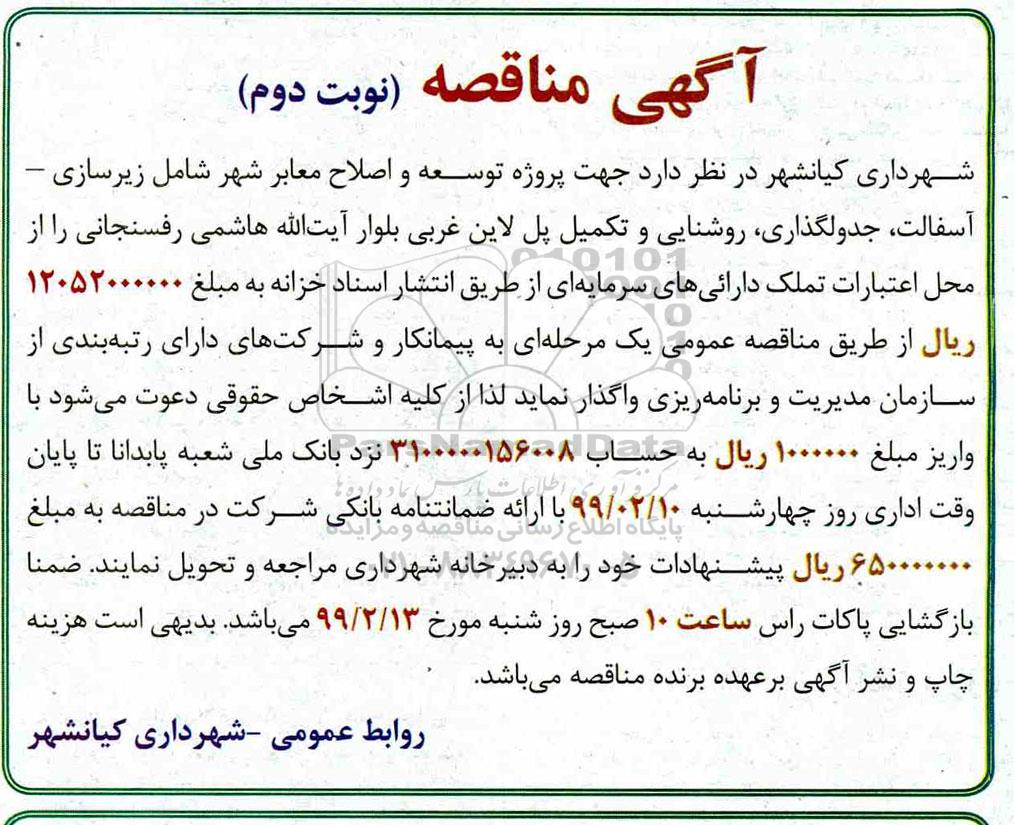 آگهی مناقصه (نوبت دوم)
شهرداری کیانشهر در نظر دارد جهت پروژه توسعه و اصلاح معابر شهر شامل زیرسازی –
آسفالت، جدولگذاری، روشنایی و تکمیل پل لاین غربی بلوار آیت‌الله هاشمی رفسنجانی را از
محل اعتبارات تملک دارائی‌های سرمایه‌ای از طریق انتشار اسناد خزانه به مبلغ ۱۲۰۵۲۰۰۰۰۰۰
ریال از طریق مناقصه عمومی یک مرحله‌ای به پیمانکار و شرکت‌های دارای رتبه‌بندی از
سازمان مدیریت و برنامه‌ریزی واگذار نماید لذا از کلیه اشخاص حقوقی دعوت می‌شود با
واریز مبلغ ۱۰۰۰۰۰۰ ریال به حساب ۳۱۰۰۰۰۰۱۵۶۰۰۸ نزد بانک ملی شعبه پابدانا تا پایان
وقت اداری روز چهارشنبه ۹۹/۰۲/۱۰ با ارائه ضمانتنامه بانکی شرکت در مناقصه به مبلغ
۶۵۰۰۰۰۰۰۰ ریال پیشنهادات خود را به دبیرخانه شهرداری مراجعه و تحویل نمایند. ضمنا
بازگشایی پاکات راس ساعت ۱۰ صبح روز شنبه مورخ ۹۹/۲/۱۳ می‌باشد. بدیهی است هزینه
چاپ و نشر آگهی برعهده برنده مناقصه می‌باشد.
روابط عمومی -شهرداری کیانشهر
ParsNamadData
پایگاه اطلاع رسانی مناقصه و مزایده